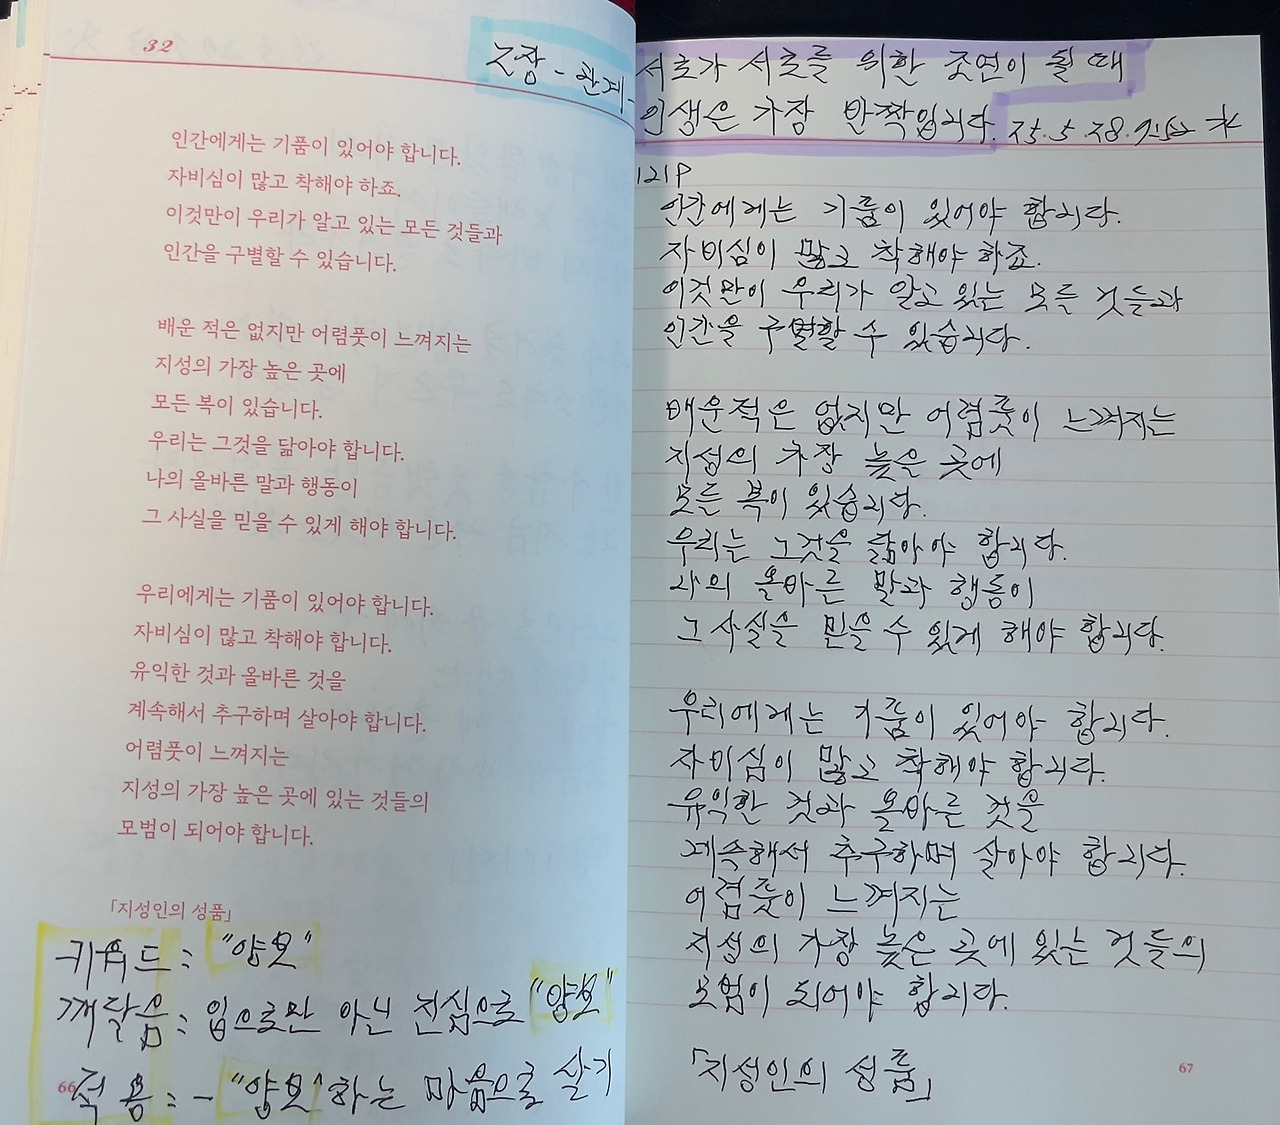 32
2장 - 관계 -
인간에게는 기품이 있어야 합니다.
자비심이 많고 착해야 하죠.
이것만이 우리가 알고 있는 모든 것들과
인간을 구별할 수 있습니다.
배운 적은 없지만 어렴풋이 느껴지는
지성의 가장 높은 곳에
모든 복이 있습니다.
우리는 그것을 닮아야 합니다.
나의 올바른 말과 행동이
그 사실을 믿을 수 있게 해야 합니다.
우리에게는 기품이 있어야 합니다.
자비심이 많고 착해야 합니다.
유익한 것과 올바른 것을
계속해서 추구하며 살아야 합니다.
어렴풋이 느껴지는
지성의 가장 높은 곳에 있는 것들의
모범이 되어야 합니다.
「지성인의 성품」
키워드 : "양보"
깨달음 : 입으로만 아닌 진심으로 "양보"
적용 : - "양보"하는 마음으로 살기
66
서로가 서로를 위한 조연이 될 때
인생은 가장 반짝입니다. 25.5.28. 水
121P
인간에게는 기품이 있어야 합니다.
자비심이 많고 착해야 하죠.
이것만이 우리가 알고 있는 모든 것들과
인간을 구별할 수 있습니다.
배운적은 없지만 어렴풋이 느껴지는
지성의 가장 높은 곳에
모든 복이 있습니다.
우리는 그것을 닮아야 합니다.
나의 올바른 말과 행동이
그 사실을 믿을 수 있게 해야 합니다.
우리에게는 기품이 있어야 합니다.
자비심이 많고 착해야 합니다.
유익한 것과 올바른 것을
계속해서 추구하며 살아야 합니다.
어렴풋이 느껴지는
지성의 가장 높은 곳에 있는 것들의
모범이 되어야 합니다.
「지성인의 성품」
67